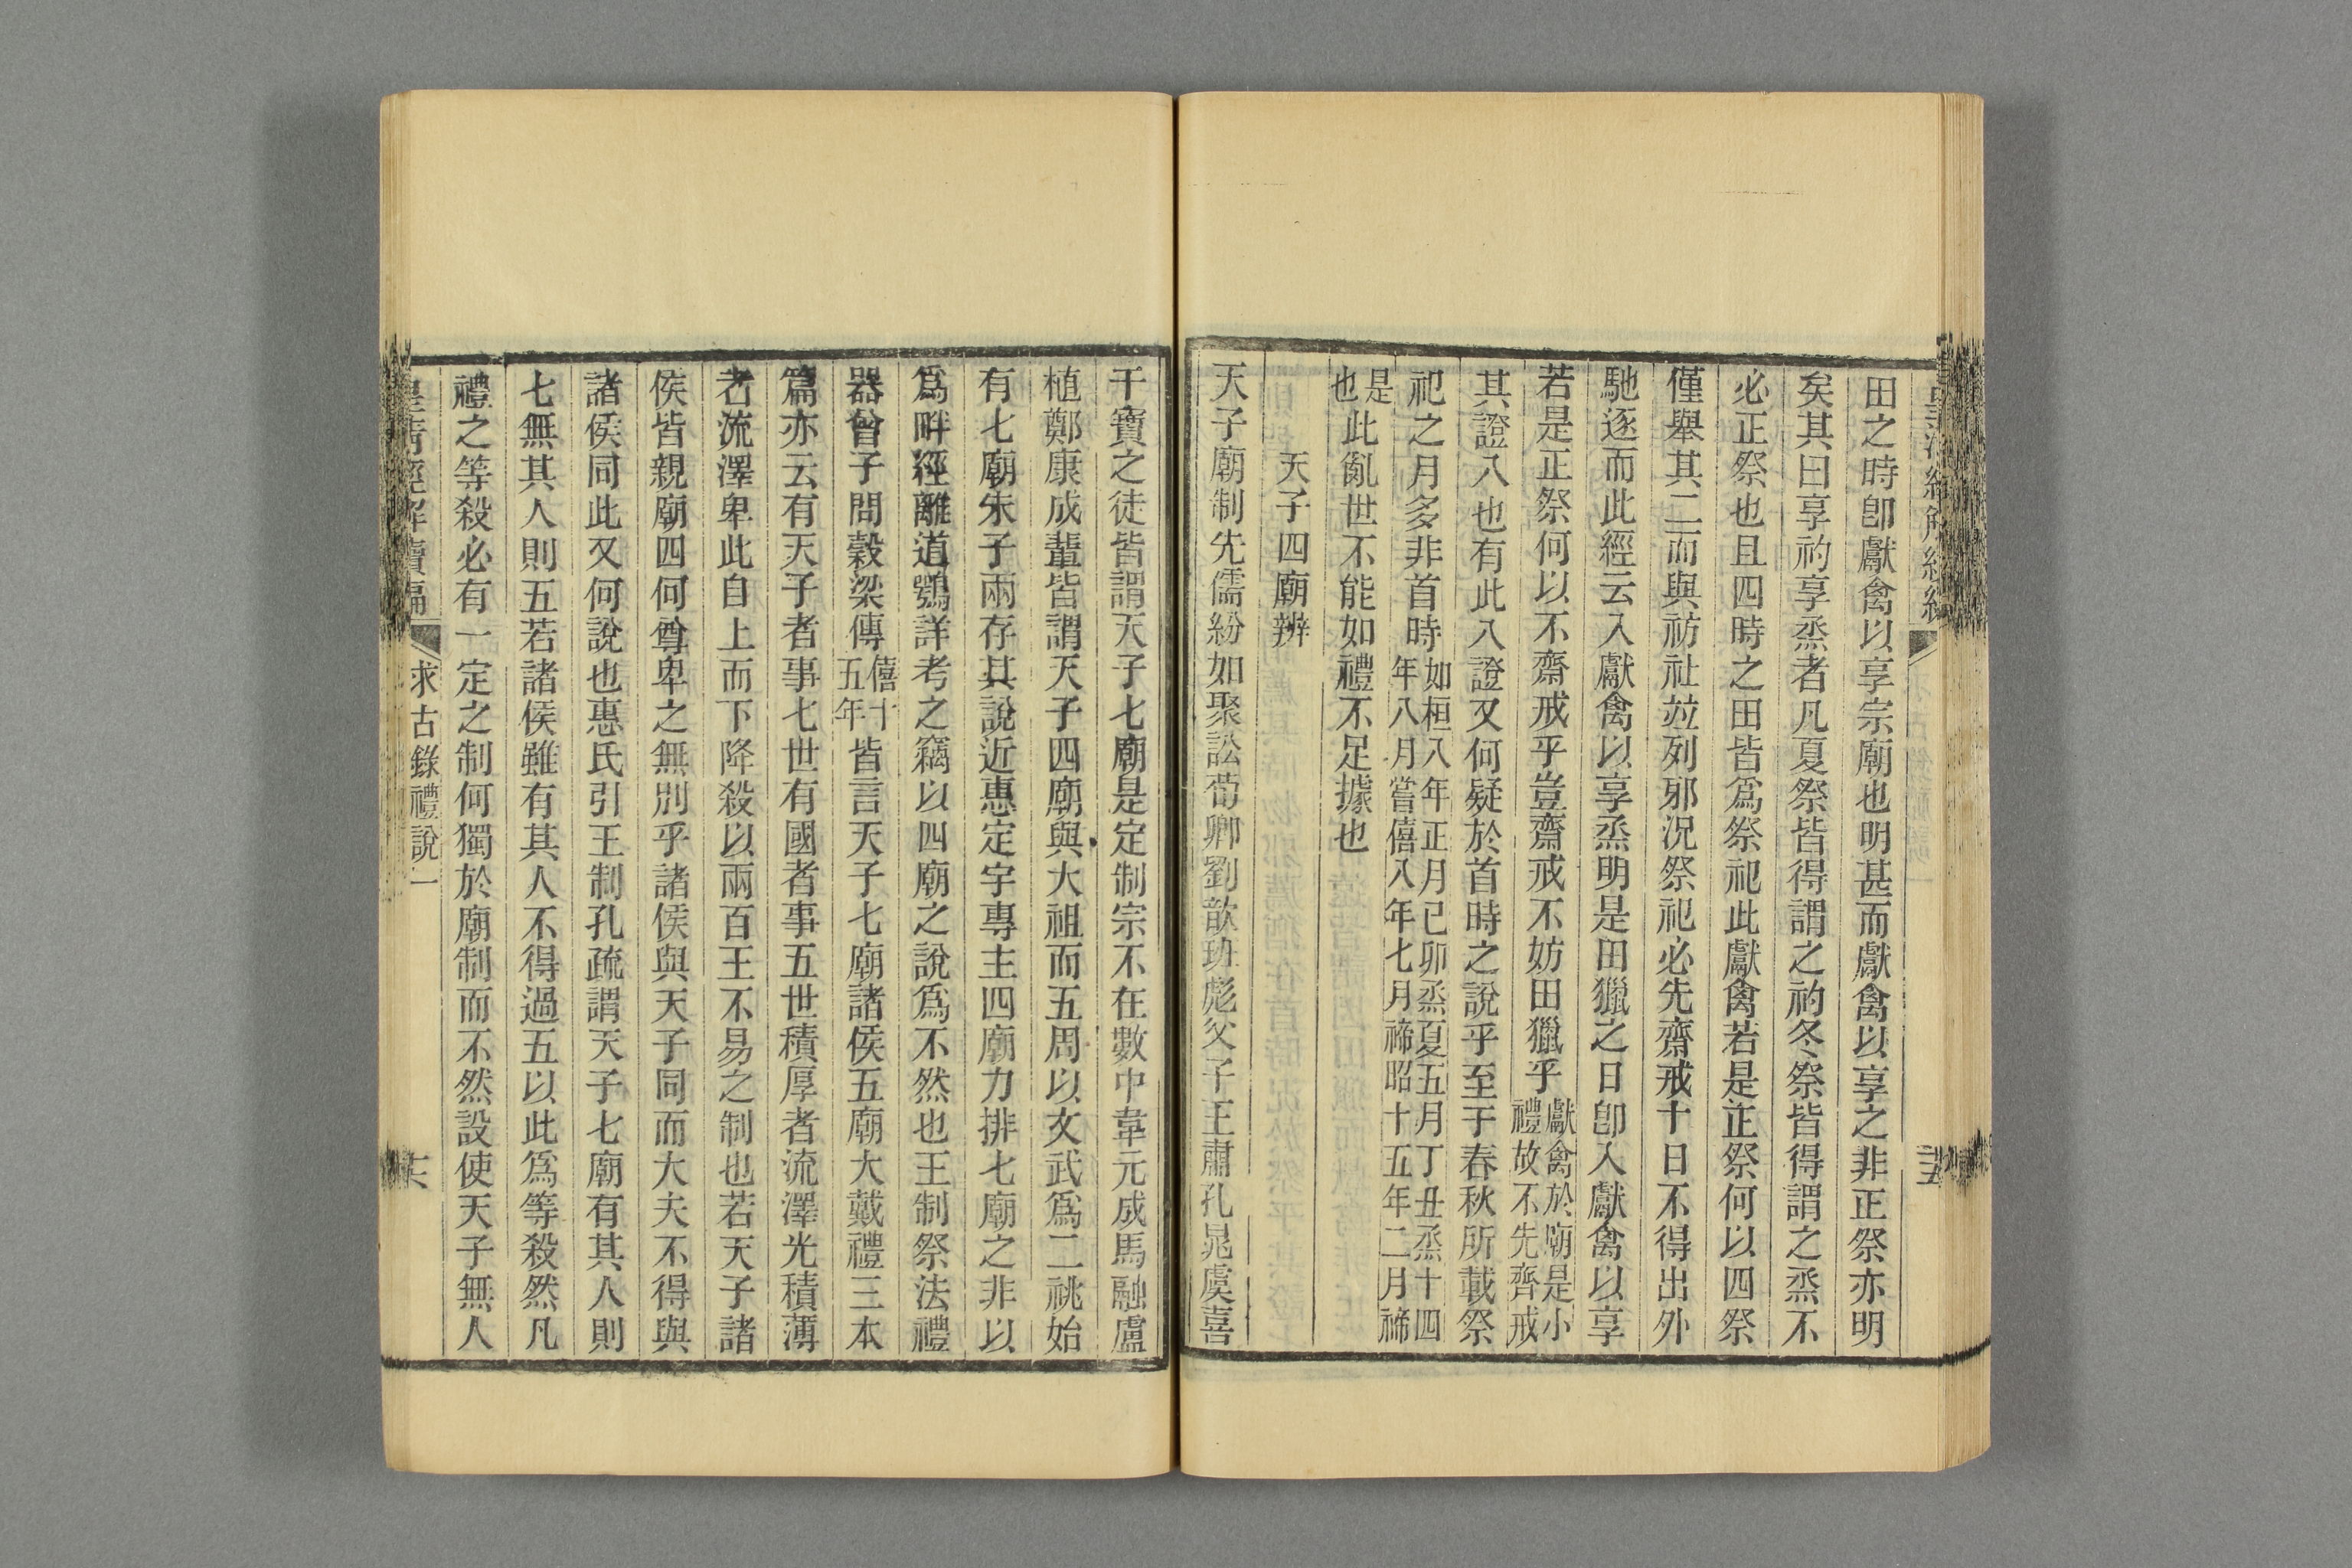 田之時卽獻禽以享宗廟也明甚而獻禽以享之非正祭亦明
矣其曰享礿享烝者凡夏祭皆得謂之礿冬祭皆得謂之烝不
必正祭也且四時之田皆爲祭祀此獻禽若是正祭何以四祭
僅舉其二而與祊社竝列邪況祭祀必先齋戒十日不得出外
馳逐而此經云入獻禽以享烝明是田獵之日卽入獻禽以享
若是正祭何以不齋戒乎豈齋戒不妨田獵乎獻禽於廟是小禮故不先齊戒
其證八也有此八證又何疑於首時之說乎至于春秋所載祭
祀之月多非首時如桓八年正月己卯烝夏五月丁丑烝十四年八月嘗僖八年七月禘昭十五年二月禘
是也此亂世不能如禮不足據也
天子四廟辨
天子廟制先儒紛如聚訟荀卿劉歆班彪父子王肅孔晁虞喜
干寶之徒皆謂天子七廟是定制宗不在數中韋元成馬融盧
植鄭康成輩皆謂天子四廟與大祖而五周以文武爲二祧始
有七廟朱子兩存其說近惠定宇專主四廟力排七廟之非以
爲畔經離道鶚詳考之竊以四廟之說爲不然也王制祭法禮
器曾子問穀梁傳僖十五年皆言天子七廟諸侯五廟大戴禮三本
篇亦云有天子者事七世有國者事五世積厚者流澤光積薄
者流澤卑此自上而下降殺以兩百王不易之制也若天子諸
侯皆親廟四何尊卑之無別乎諸侯與天子同而大夫不得與
諸侯同此又何說也惠氏引王制孔疏謂天子七廟有其人則
七無其人則五若諸侯雖有其人不得過五以此爲等殺然凡
禮之等殺必有一定之制何獨於廟制而不然設使天子無人
皇清經解續編 求古錄禮說一